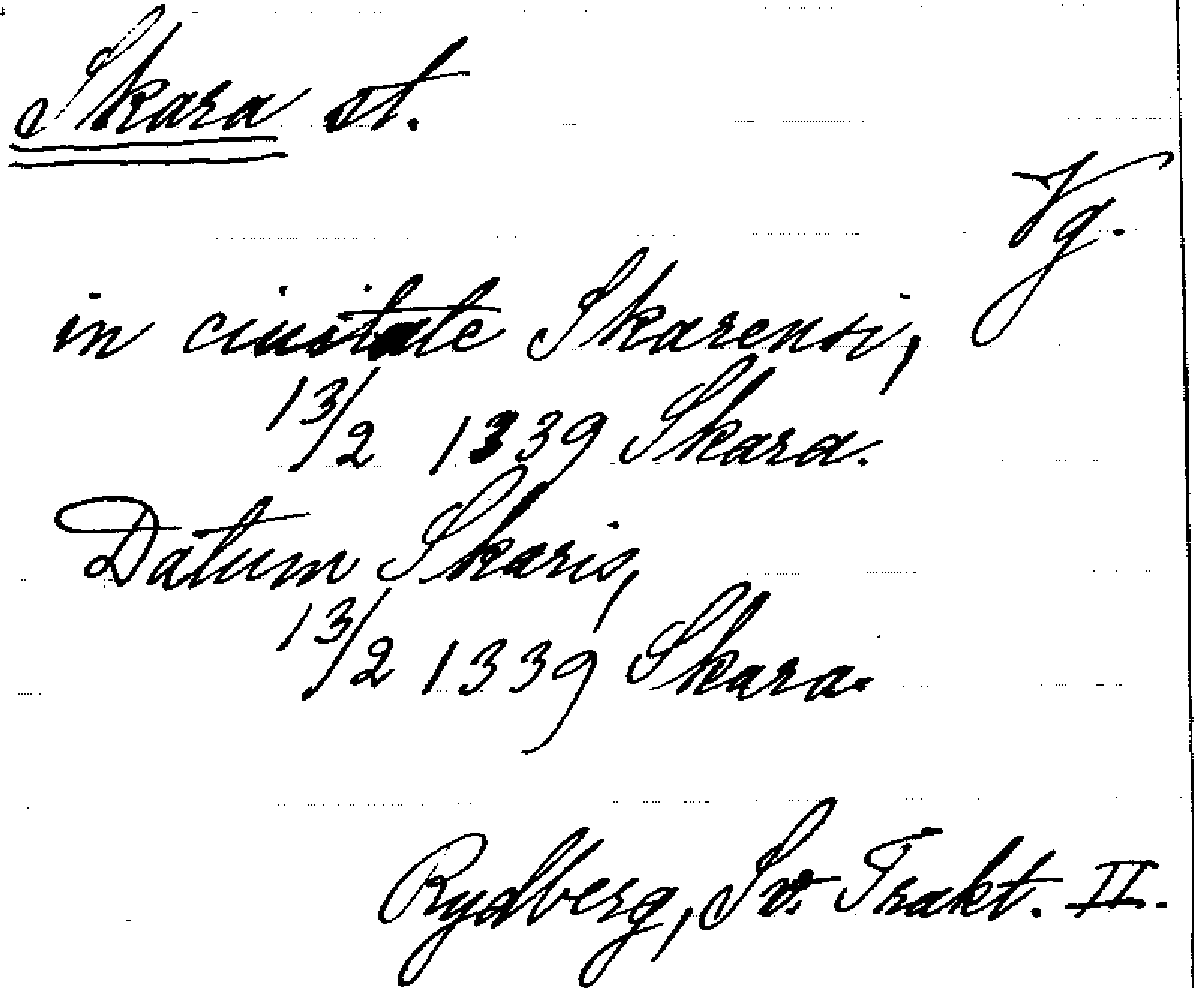 Skara st.
Vg.
in ciuitate Skarensi,
13/2 1339 Skara.
Datum Skaris,
13/2 1339 Skara.
Rydberg, Sv. Trakt. II.